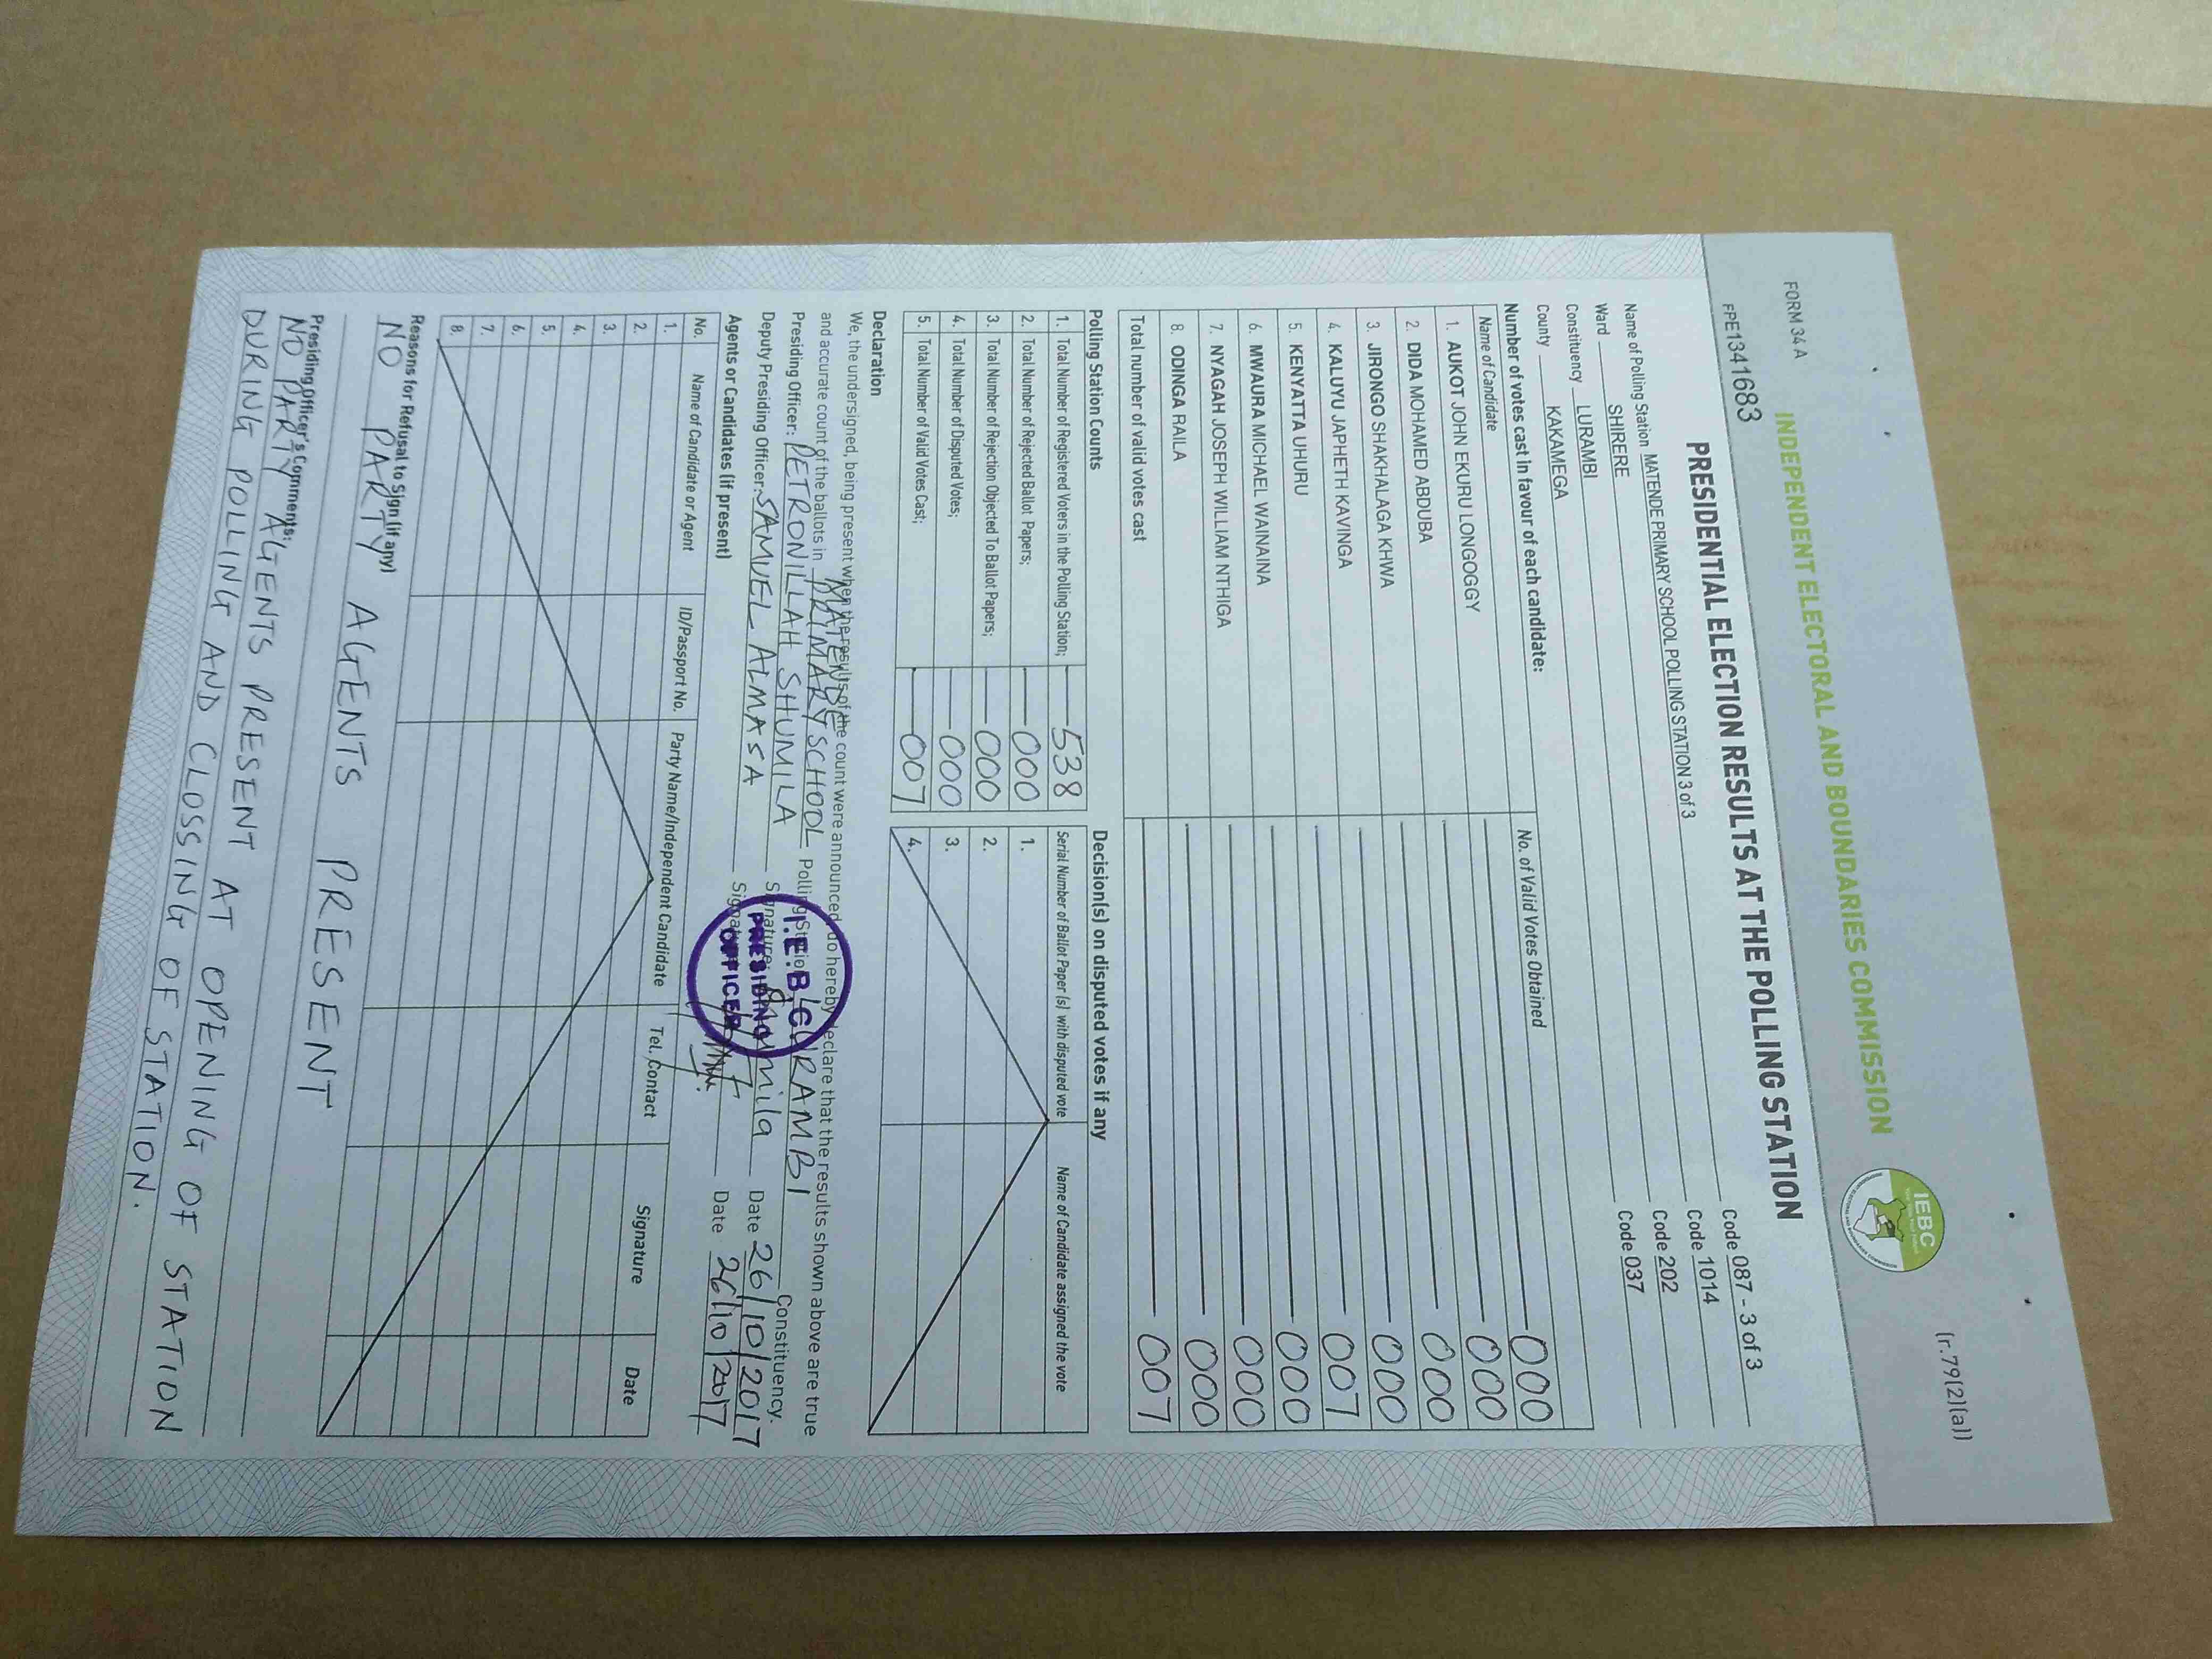 FORM 34 A
(r.79(2)(a))
INDEPENDENT ELECTORAL AND BOUNDARIES COMMISSION
IEBC
FPE1341683
PRESIDENTIAL ELECTION RESULTS AT THE POLLING STATION
Name of Polling Station MATENDE PRIMARY SCHOOL POLLING STATION 3 of 3 Code 087 - 3 of 3
Ward SHIRERE Code 1014
Constituency LURAMBI Code 202
County KAKAMEGA Code 037
Number of votes cast in favour of each candidate:
Name of Candidate No. of Valid Votes Obtained
1. AUKOT JOHN EKURU LONGOGGY 000
2. DIDA MOHAMED ABDUBA 000
3. JIRONGO SHAKHALAGA KHWA 000
4. KALUYU JAPHETH KAVINGA 000
5. KENYATTA UHURU 007
6. MWAURA MICHAEL WAINAINA 000
7. NYAGAH JOSEPH WILLIAM NTHIGA 000
8. ODINGA RAILA 000
Total number of valid votes cast 007
Polling Station Counts
1. Total Number of Registered Voters in the Polling Station; 538
2. Total Number of Rejected Ballot Papers; 000
3. Total Number of Rejection Objected To Ballot Papers; 000
4. Total Number of Disputed Votes; 000
5. Total Number of Valid Votes Cast; 007
Decision(s) on disputed votes if any
Serial Number of Ballot Paper (s) with disputed vote Name of Candidate assigned the vote
1.
2.
3.
4.
Declaration
We, the undersigned, being present when the results of the count were announced, do hereby declare that the results shown above are true
and accurate count of the ballots in MATENDE PRIMARY SCHOOL Polling Station LURAMBI Constituency.
Presiding Officer: PETRONILLAH SHUMILA Signature: Date 26/10/2017
Deputy Presiding Officer: SAMUEL ALMASA Signature Date 26/10/2017
I.E.B.C
PRESIDING
OFFICER
Agents or Candidates (if present)
No. Name of Candidate or Agent ID/Passport No. Party Name/Independent Candidate Tel. Contact Signature Date
1.
2.
3.
4.
5.
6.
7.
8.
Reasons for Refusal to Sign (if any)
NO PARTY AGENTS PRESENT
Presiding Officer's Comments:
NO PARTY AGENTS PRESENT AT OPENING OF STATION
DURING POLLING AND CLOSSING OF STATION.